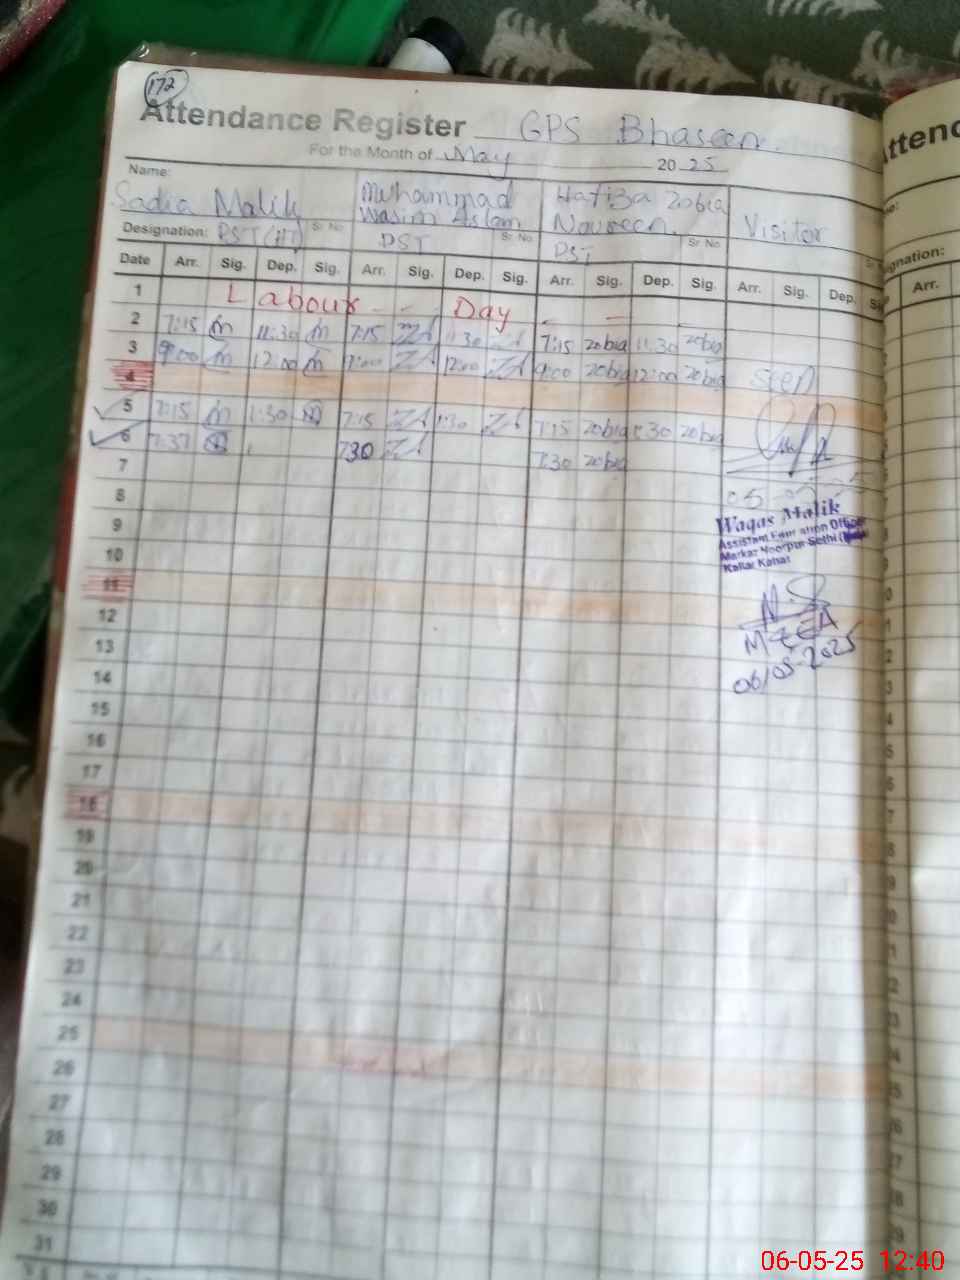 172
Attendance Register GPS Bhaseen
For the Month of May 2025
Name: Sadia Malik Muhammad Wasim Aslam Hafiza Zobia Noureen Visitor
Designation: PST (HT) Sr No PST Sr No PST Sr No
Date Arr. Sig. Dep. Sig. Arr. Sig. Dep. Sig. Arr. Sig. Dep. Sig. Arr. Sig. Dep.
1 Labour - - Day - -
2 7:15 11:30 7:15 1:30 7:15 zobia 11:30 zobia
3 9:00 12:00 9:00 12:00 9:00 zobia 12:00 zobia
4 seen
5 7:15 1:30 7:15 1:30 7:15 zobia 1:30 zobia
6 7:37 7:30 7:30 zobia
7
8 05
9 Waqas Malik
Assistant Education Officer
Markaz Noorpur Sethi
Kallar Kahar
10
11
12 MEEA
13 06/05-2025
14
15
16
17
18
19
20
21
22
23
24
25
26
27
28
29
30
31
Attend
ignation:
Arr.
06-05-25 12:40